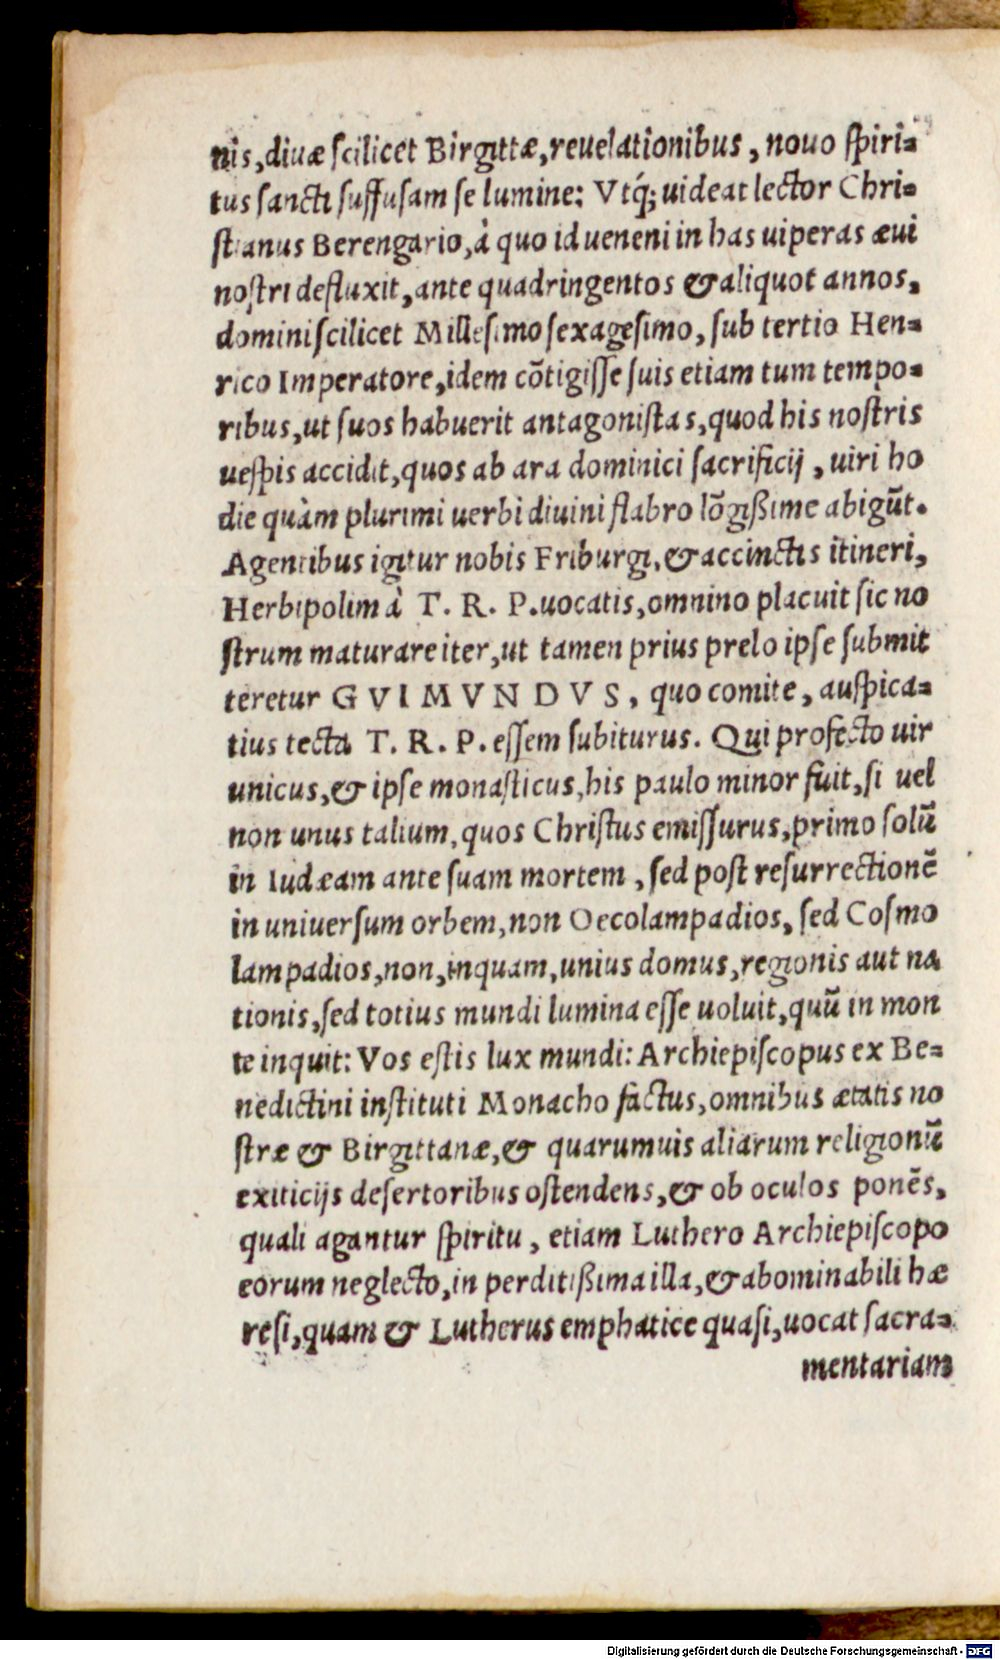 nis, diuæ ſcilicet Birgittæ, reuelationibus, nouo ſpiri=
tus ſancti ſuffuſam ſe lumine: Vtq́; uideat lector Chri=
ſtianus Berengario, à quo id ueneni in has uiperas æui
noſtri defluxit, ante quadringentos & aliquot annos,
domini ſcilicet Milleſimo ſexageſimo, ſub tertio Hen=
rico Imperatore, idem cõtigiſſe ſuis etiam tum tempo=
ribus, ut ſuos habuerit antagoniſtas, quod his noſtris
ueſpis accidit, quos ab ara dominici ſacrificij, uiri ho
die quàm plurimi uerbi diuini flabro lõgißime abigũt.
Agentibus igitur nobis Friburgi, & accinctis itineri,
Herbipolim à T. R. P. uocatis, omnino placuit ſic no
ſtrum maturare iter, ut tamen prius prelo ipſe ſubmit
teretur GVIMVNDVS, quo comite, auſpica=
tius tecta T. R. P. eſſem ſubiturus. Qui profecto uir
unicus, & ipſe monaſticus, his paulo minor fuit, ſi uel
non unus talium, quos Chriſtus emiſſurus, primo ſolũ
in Iudæam ante ſuam mortem, ſed poſt reſurrectionẽ
in uniuerſum orbem, non Oecolampadios, ſed Coſmo
lampadios, non, inquam, unius domus, regionis aut na
tionis, ſed totius mundi lumina eſſe uoluit, quũ in mon
te inquit: Vos eſtis lux mundi: Archiepiſcopus ex Be=
nedictini inſtituti Monacho factus, omnibus ætatis no
ſtræ & Birgittanæ, & quarumuis aliarum religionũ
exiticijs deſertoribus oſtendens, & ob oculos ponẽs,
quali agantur ſpiritu, etiam Luthero Archiepiſcopo
eorum neglecto, in perditißima illa, & abominabili hæ
reſi, quam & Lutherus emphatice quaſi, uocat ſacra=
mentariam
Digitalisierung gefördert durch die Deutsche Forschungsgemeinschaft - DFG